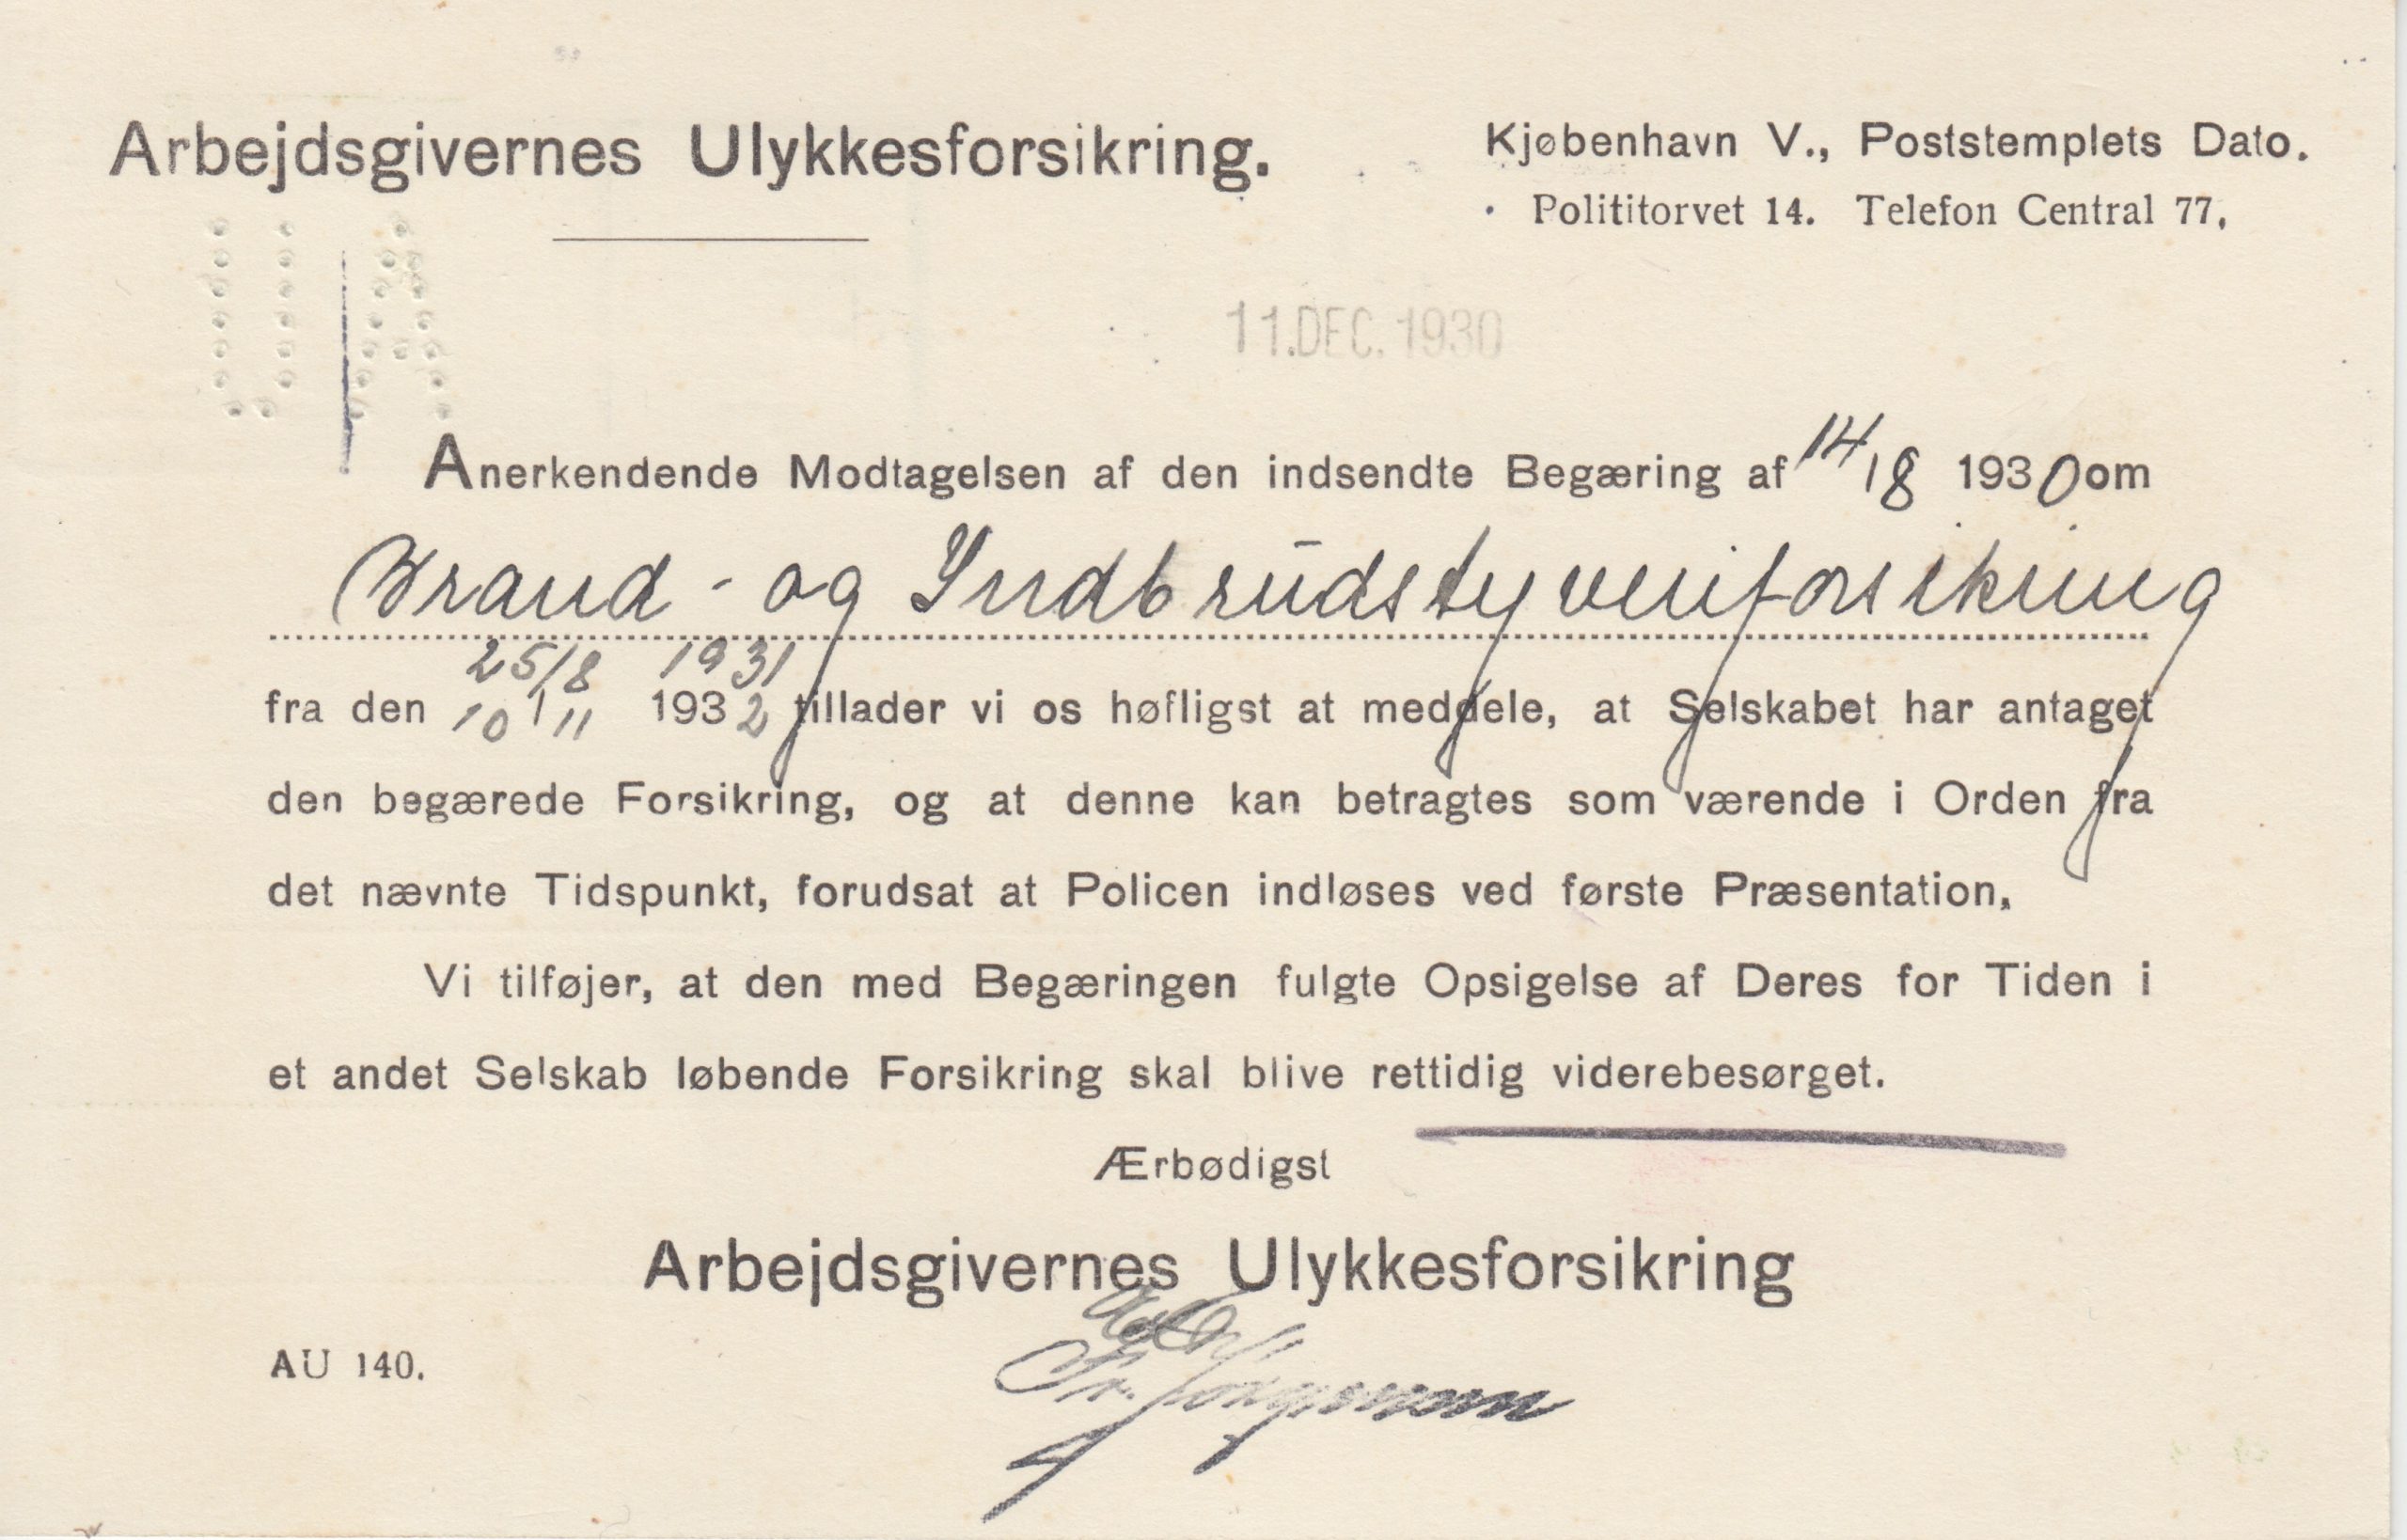 Arbejdsgivernes Ulykkesforsikring.
Kjøbenhavn V., Poststemplets Dato.
Polititorvet 14. Telefon Central 77.
11.DEC.1930
Anerkendende Modtagelsen af den indsendte Begæring af 14/8 1930 om
Brand- og Indbrudstyveriforsikring
25/8 1931
fra den 10/11 1932 tillader vi os høfligst at meddele, at Selskabet har antaget
den begærede Forsikring, og at denne kan betragtes som værende i Orden fra
det nævnte Tidspunkt, forudsat at Policen indløses ved første Præsentation.
Vi tilføjer, at den med Begæringen fulgte Opsigelse af Deres for Tiden i
et andet Selskab løbende Forsikring skal blive rettidig viderebesørget.
Ærbødigst
Arbejdsgivernes Ulykkesforsikring
AU 140.